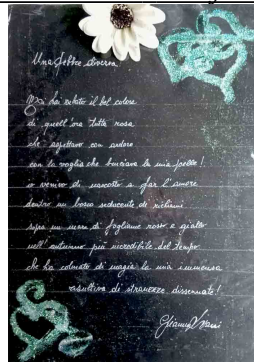 Una febbre diversa.
Mi ha rubato il bel colore
di quell'ora tutta rosa
che aspettavo con ardore
con la voglia che bruciava la mia pelle!
o venivo di nascosto a far l'amore
dentro un bosco seducente di richiami
sopra un mare di fogliame rosso e giallo
nell'autunno più incredibile del tempo
che ha colmato di magia la mia immensa
risultiva di stranezze dissennate!